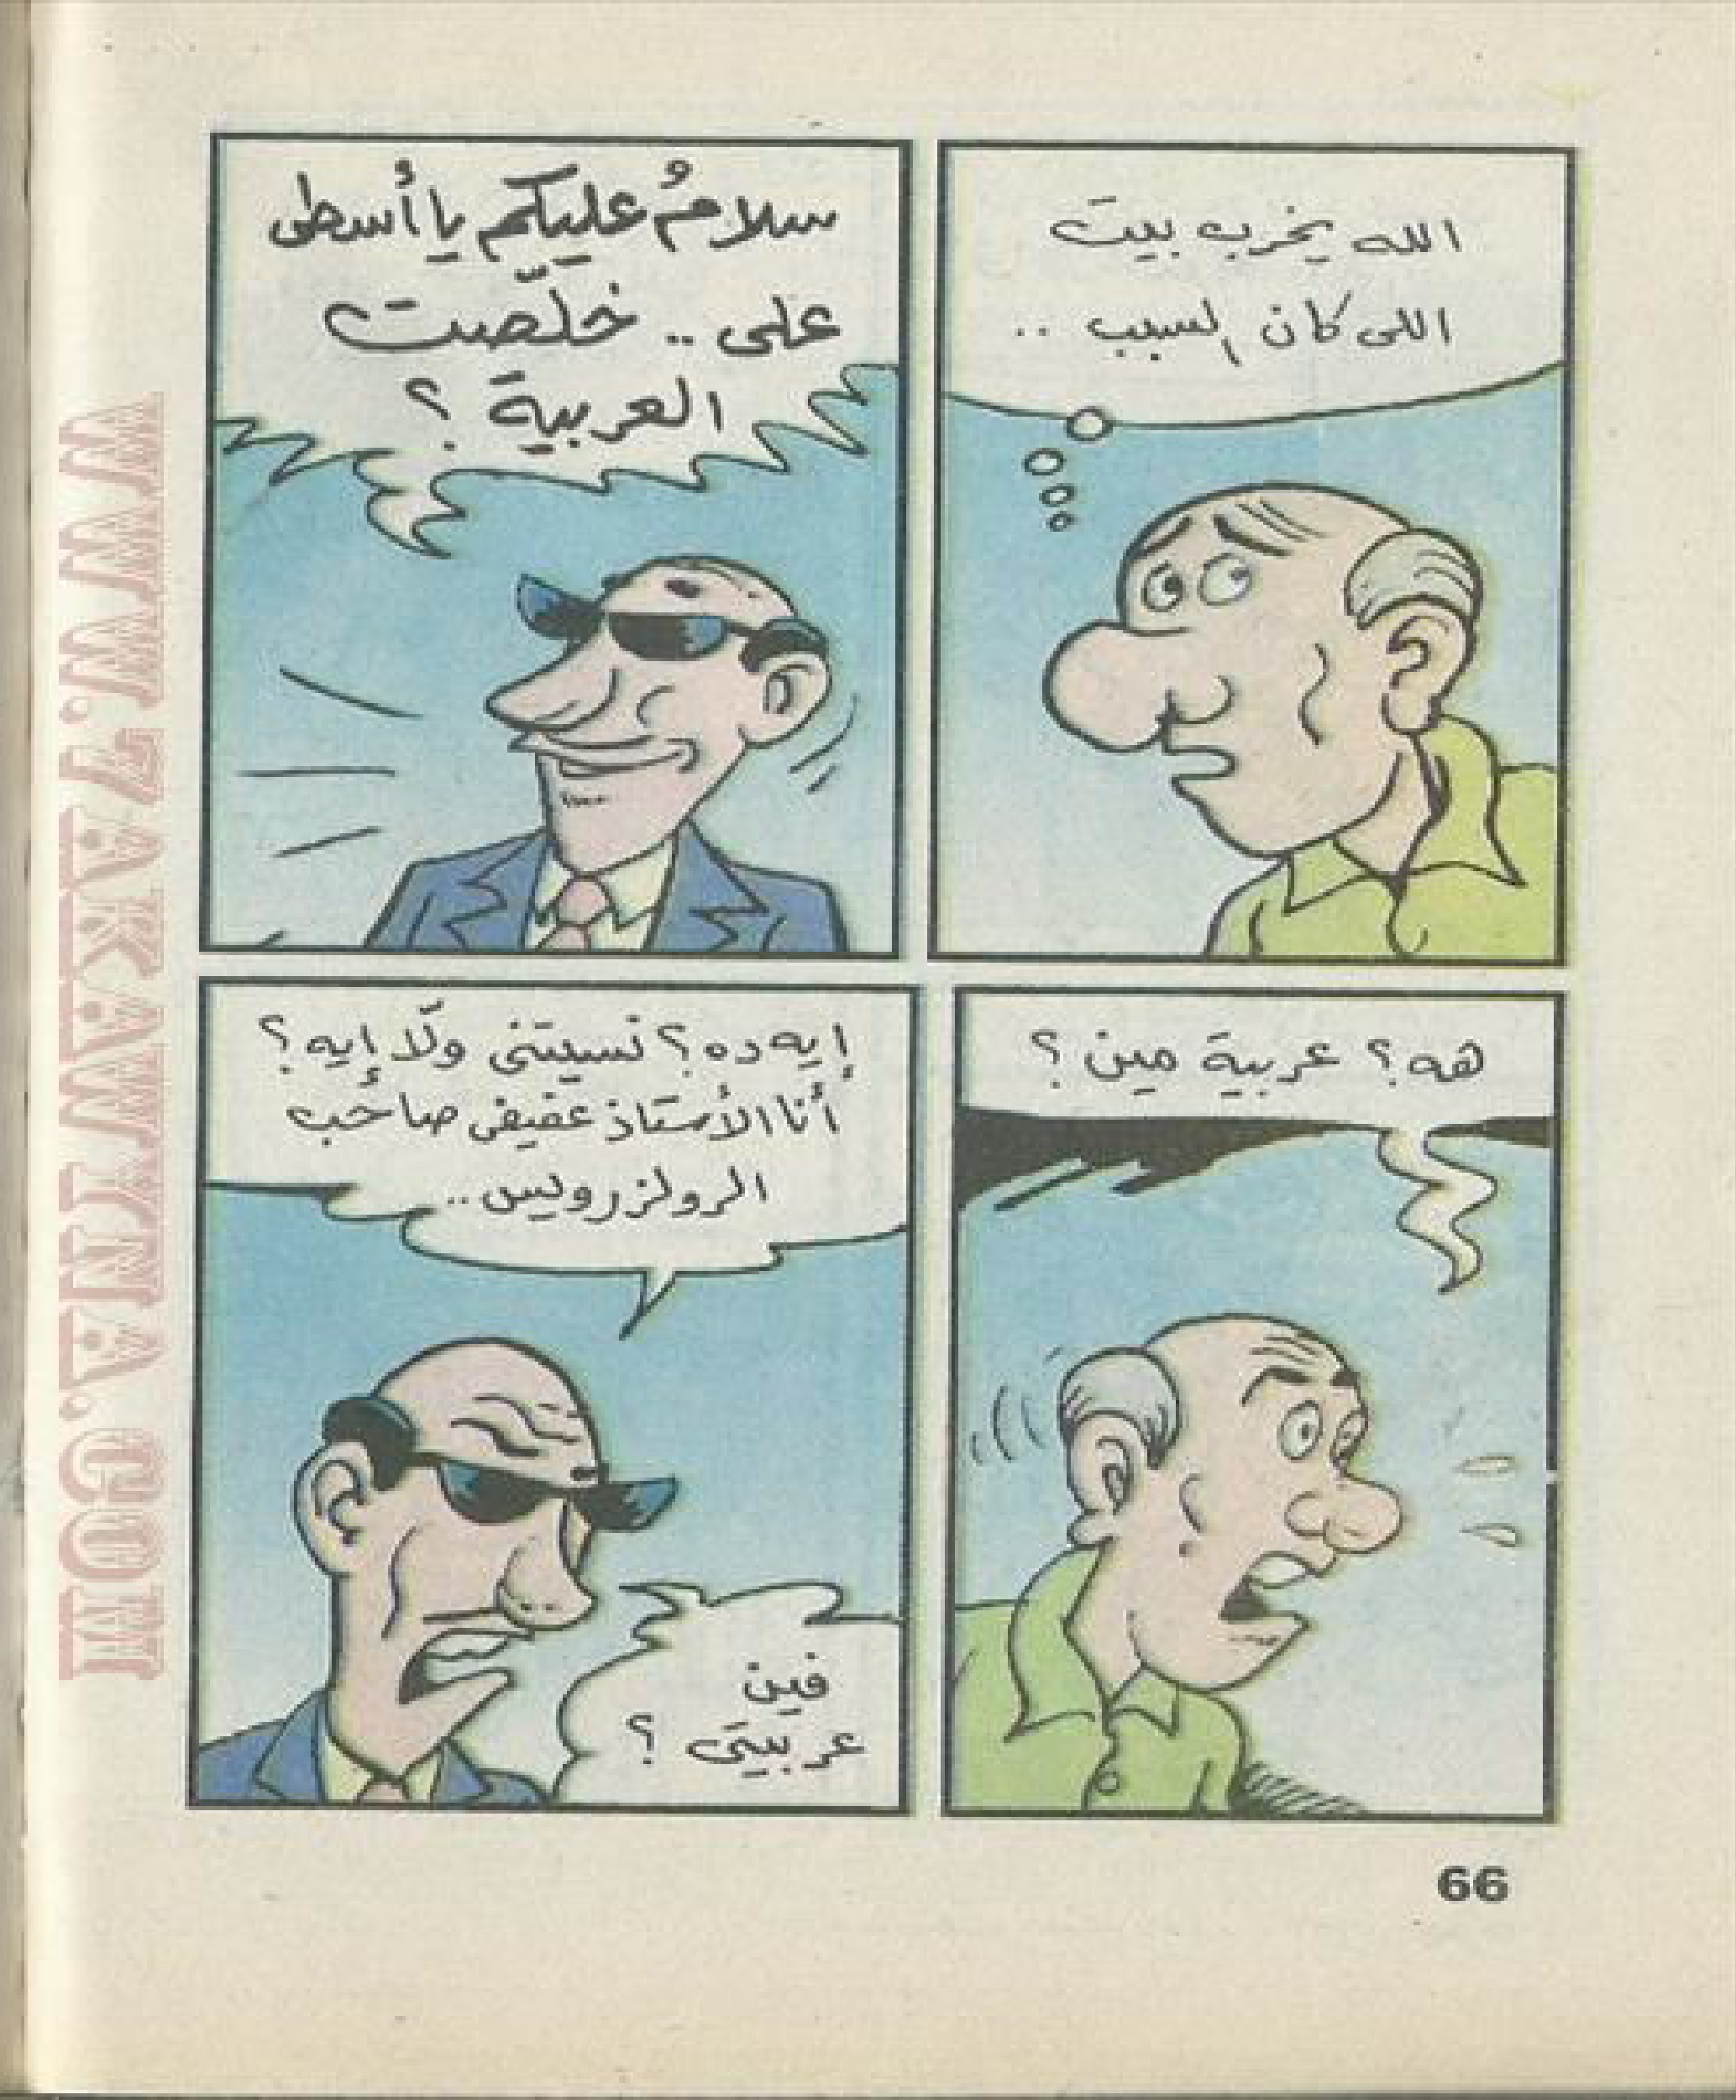 الله يخرب بيت
اللى كان السبب ..
سلامُ عليكم يا أسطى
على .. خلّصت
العربية ؟
هه ؟ عربية مين ؟
إيه ده ؟ نسيتنى ولّا إيه ؟
أنا الأستاذ عفيفى صاحب
الرولز رويس ..
فين
عربيتى ؟
66
WWW.7AKAWTNA.COM